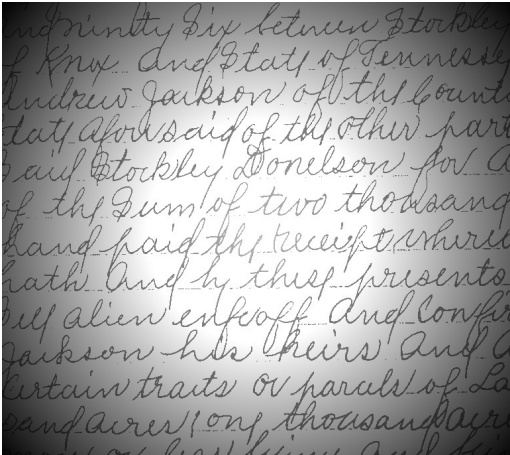 and ninety Six between Stockley
of Knox and State of Tennessee
Andrew Jackson of the Count
tate aforesaid of the other part
Said Stockley Donelson for a
of the Sum of two thousand
hand paid the receipt where
hath and by these presents
Sell alien enfeoff and Confir
Jackson his heirs and a
Certain tracts or parcels of La
sand acres, one thousand acre